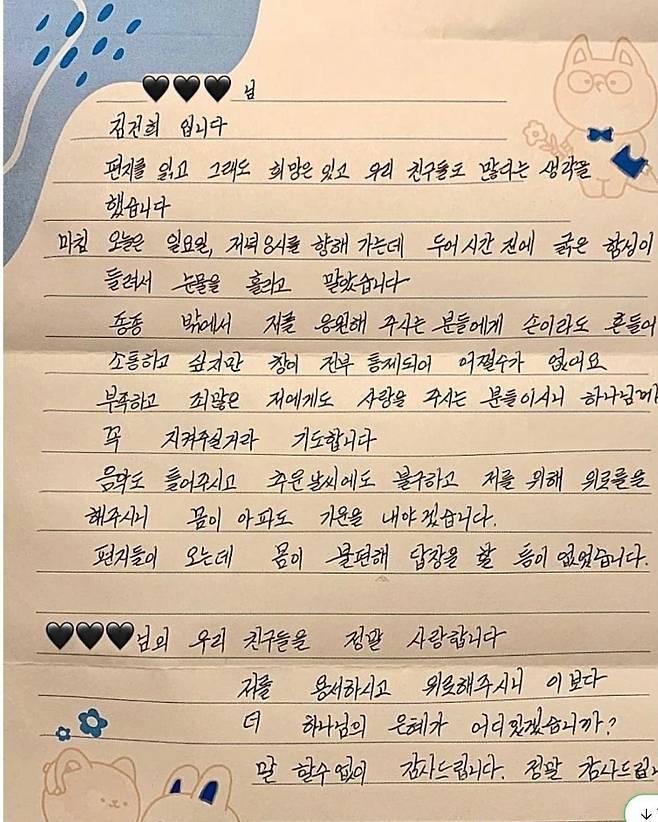 🖤🖤🖤님
김건희 입니다
편지를 읽고 그래도 희망은 있고 우리 친구들도 많다는 생각을
했습니다
마침 오늘은 일요일, 저녁 8시를 향해 가는데 두어시간 전에 굵은 함성이
들려서 눈물을 흘리고 말았습니다
종종 밖에서 저를 응원해 주시는 분들에게 손이라도 흔들어
소통하고 싶지만 창이 전부 통제되어 어쩔수가 없어요
부족하고 죄많은 저에게도 사랑을 주시는 분들이시니 하나님께
꼭 지켜주실거라 기도합니다
음악도 틀어주시고 추운날씨에도 불구하고 저를 위해 위로를을
해주시니 몸이 아파도 기운을 내야겠습니다.
편지들이 오는데 몸이 불편해 답장을 할 틈이 없었습니다.
🖤🖤🖤님의 우리 친구들을 정말 사랑합니다
저를 용서하시고 위로해주시니 이보다
더 하나님의 은혜가 어디있겠습니까?
말 할수없이 감사드립니다. 정말 감사드립니